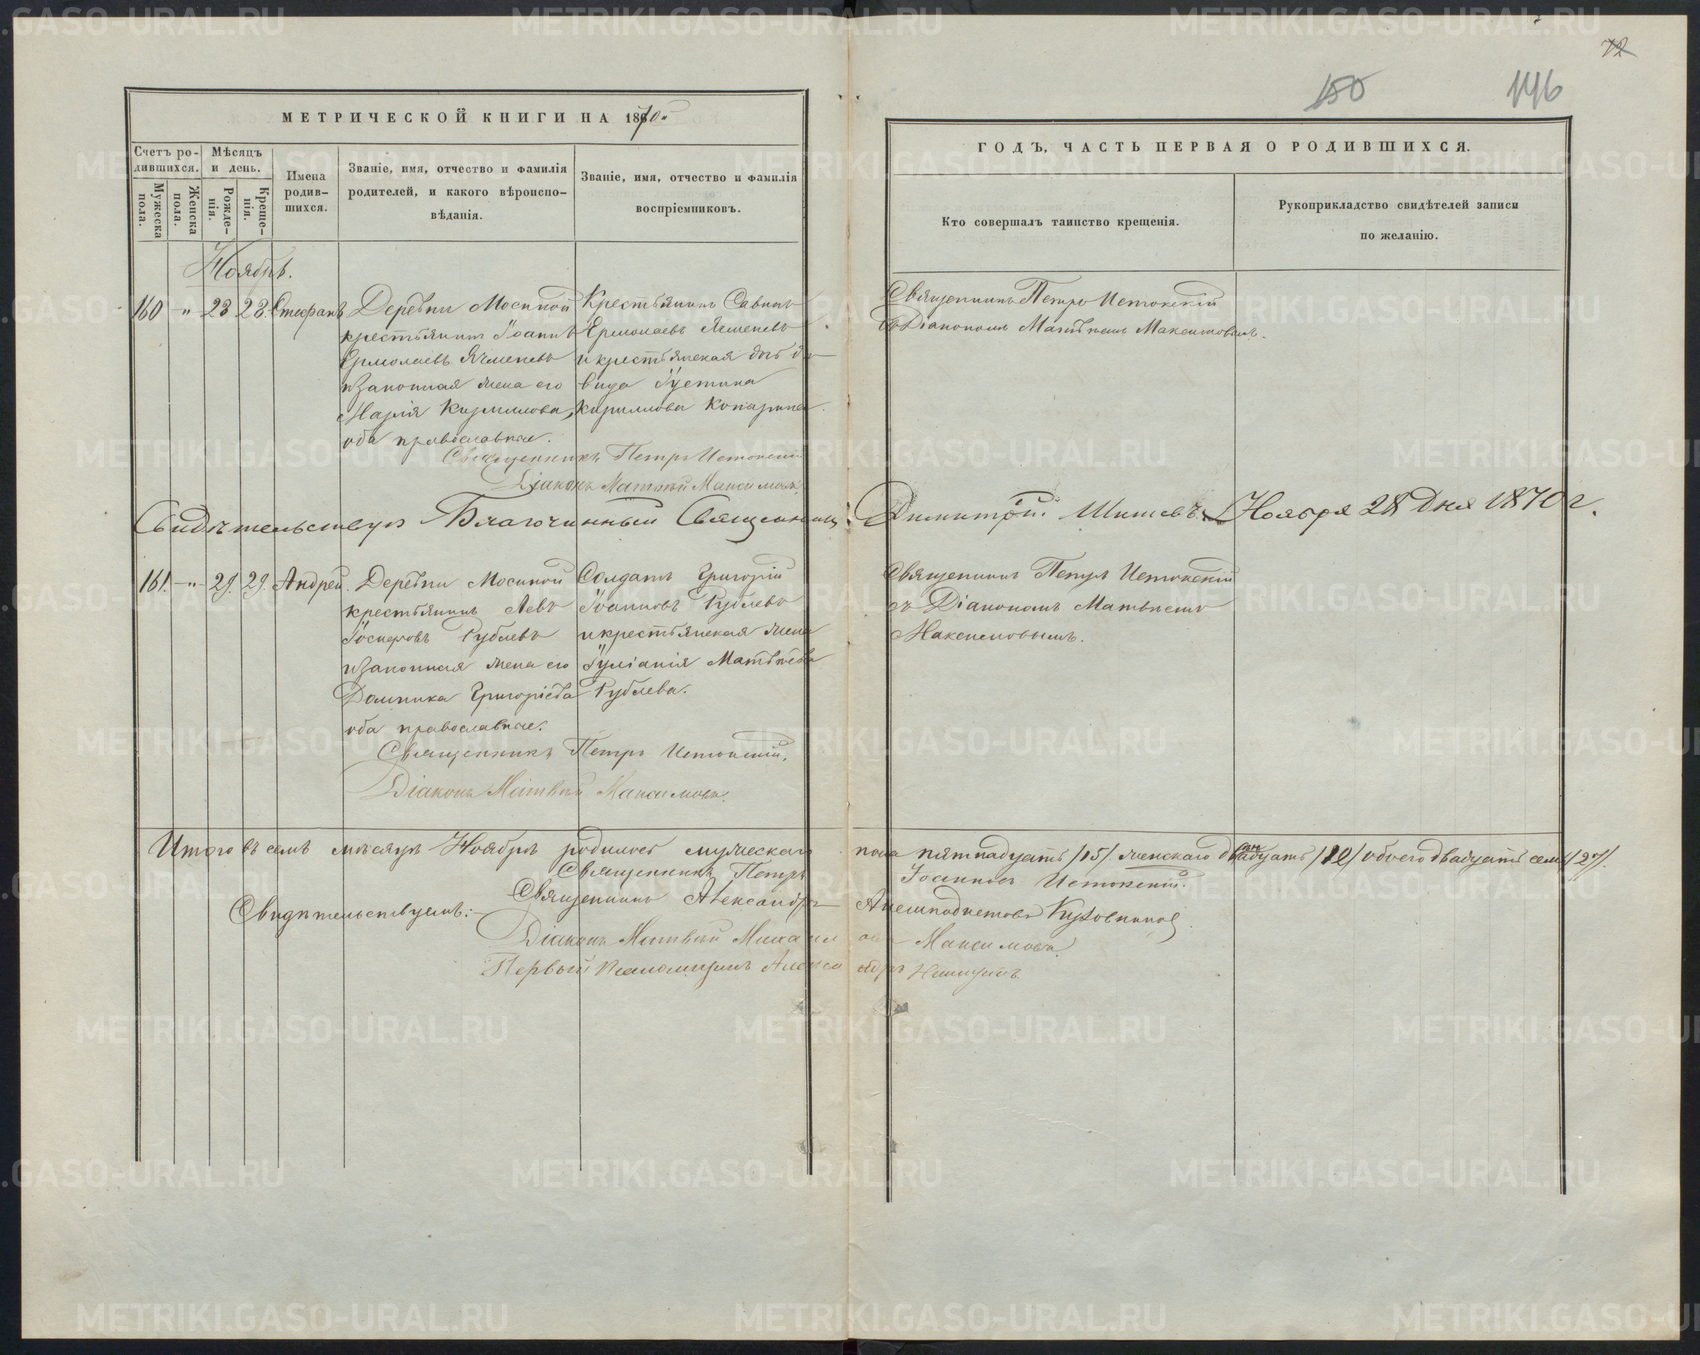 72
150 146
МЕТРИЧЕСКОЙ КНИГИ НА 1870й
ГОДЪ, ЧАСТЬ ПЕРВАЯ О РОДИВШИХСЯ.
Счетъ ро-
дившихся.
Мужеска
пола.
Женска
пола.
Мѣсяцъ
и день.
Рожде-
нія.
Креще-
нія.
Имена
родив-
шихся.
Званіе, имя, отчество и фамилія
родителей, и какого вѣроиспо-
вѣданія.
Званіе, имя, отчество и фамилія
воспріемниковъ.
Кто совершалъ таинство крещенія.
Рукоприкладство свидѣтелей записи
по желанію.
Ноябрь.
160 " 23 23. Стефанъ
Деревни Мосиной
крестьянинъ Іоаннъ
Ермолаевъ Ячменевъ
и законная жена его
Марія Кириллова,
оба православные.
Крестьянинъ Савинъ
Ермолаевъ Ячменевъ
и крестьянская
Іустина
Кириллова
Священникъ Петръ Истокскій
съ Діакономъ Матѳеемъ Максимовымъ.
Священникъ Петръ Истокскій
Діаконъ Матвѣй Максимовъ.
Свидѣтельствую Благочинный Священникъ Димитрій Шишевъ. Ноября 28 дня 1870 г.
161. " 29. 29. Андрей
Деревни Мосиной
крестьянинъ Левъ
Іосифовъ Рублевъ
и законная жена его
Домника Григоріева
оба православные.
Солдатъ Григорій
Іоанновъ Рублевъ
и крестьянская жена
Іуліанія Матѳеева
Рублева.
Священникъ Петръ Истокскій
съ Діакономъ Матѳеемъ
Максимовымъ.
Священникъ Петръ Истокскій.
Діаконъ Матвѣй Максимовъ.
Итого въ семъ мѣсяцѣ Ноябрѣ родилось мужескаго пола пятнадцать /15/ женскаго двѣнадцать /12/ обоего двадцать семь /27/.
Священникъ Петръ Іоанновъ Истокскій.
Свидѣтельствуемъ:
Священникъ Александръ
Діаконъ Матвѣй Максимовъ
Первый
METRIKI.GASO-URAL.RU